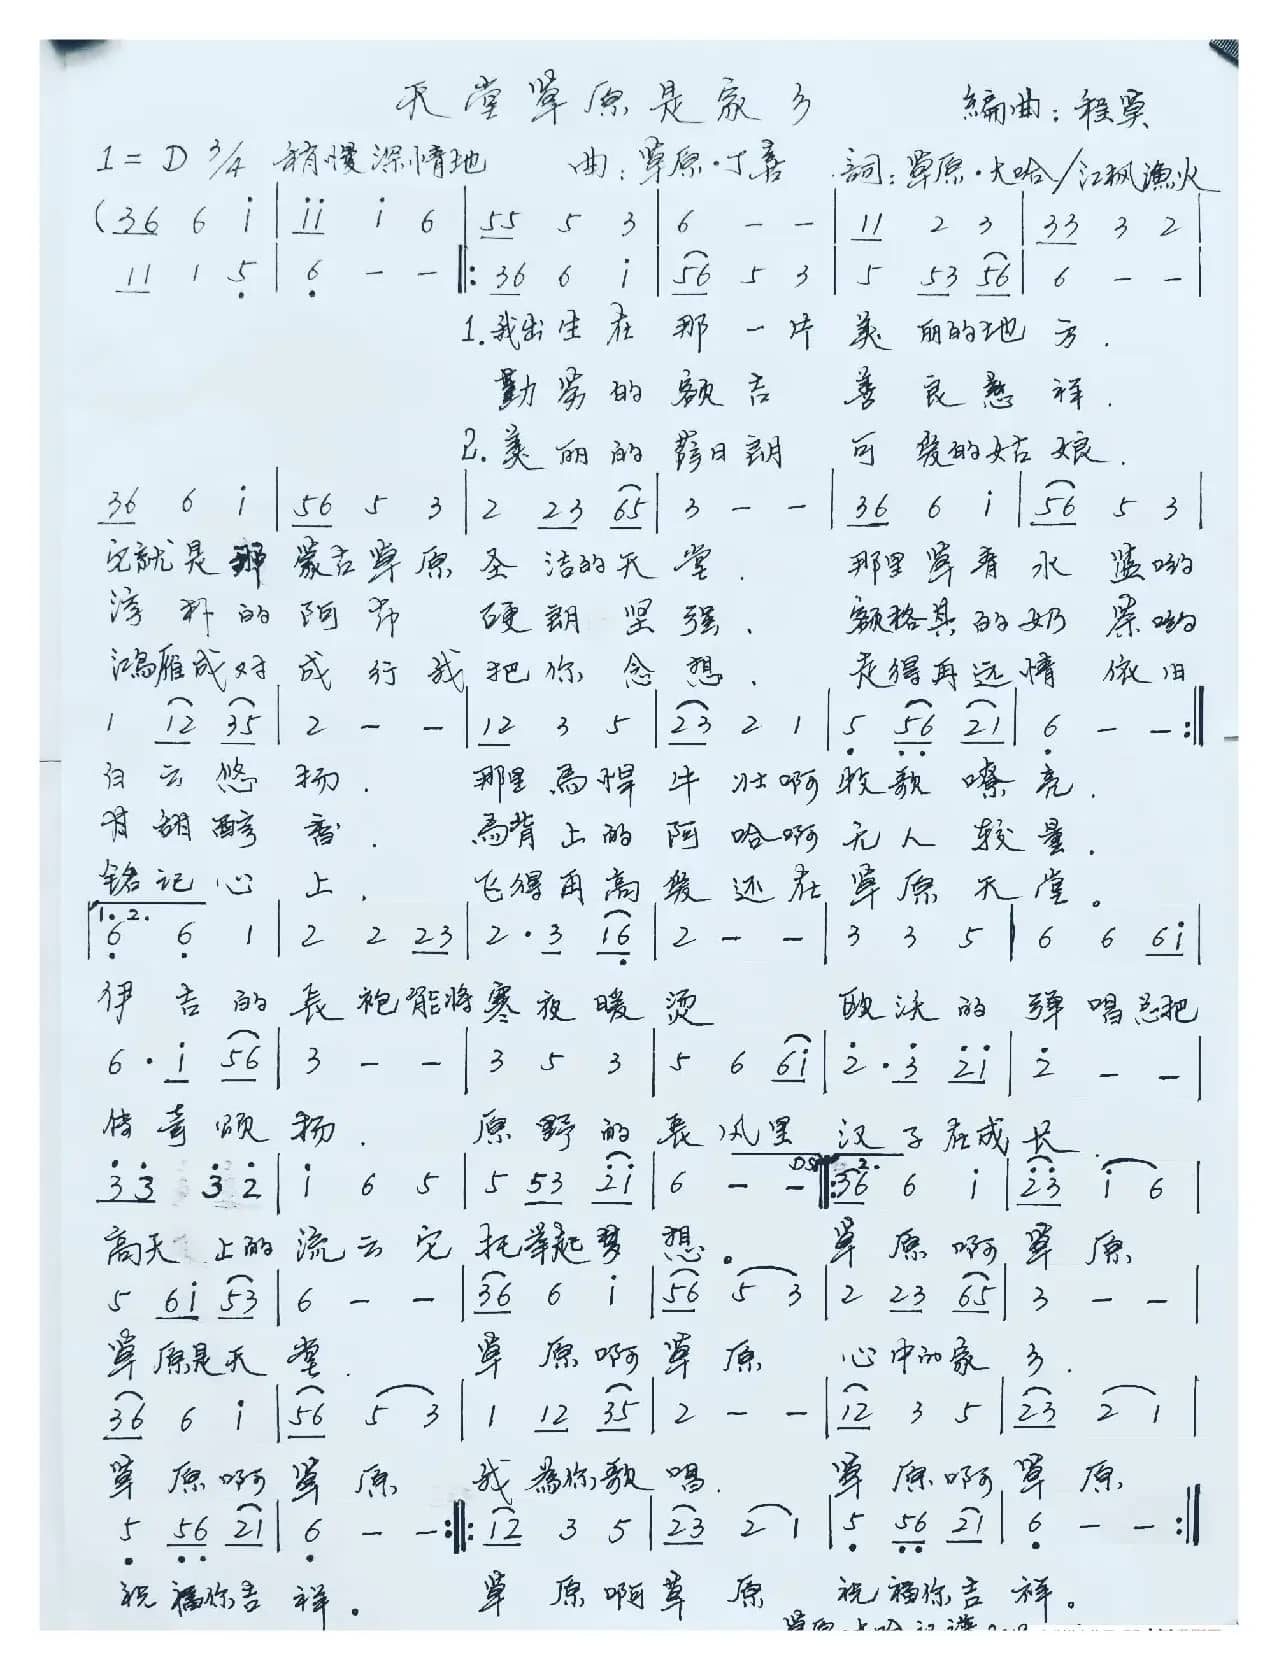 天堂草原是家乡 编曲：程英
1=D 3/4 稍慢深情地 曲：草原·丁喜 詞：草原·大哈/江枫漁火
(36 6 i | ii i 6 | 55 5 3 | 6 - - | 11 2 3 | 33 3 2 |
11 1 5 | 6 - - ‖: 36 6 i | 56 5 3 | 5 53 56 | 6 - - |
1.我出生在那一片美丽的地方.
勤劳的额吉善良慈祥.
2.美丽的萨日朗可爱的姑娘.
36 6 i | 56 5 3 | 2 23 65 | 3 - - | 36 6 i | 56 5 3 |
它就是那蒙古草原圣洁的天堂. 那里草青水蓝哟
淳朴的阿爷硬朗坚强. 额格其的奶茶哟
鸿雁成对成行我把你念想. 走得再远情依旧
1 12 35 | 2 - - | 12 3 5 | 23 2 1 | 5 56 21 | 6 - - :‖
白云悠扬. 那里馬悍牛壮啊牧歌嘹亮.
甘甜醇香. 馬背上的阿哈啊无人较量.
铭记心上. 飞得再高爱还在草原天堂。
1. 2.
6 6 1 | 2 2 23 | 2·3 16 | 2 - - | 3 3 5 | 6 6 6i |
伊吉的長袍能將寒夜暖烫 欧沃的弹唱总把
6·i 56 | 3 - - | 3 5 3 | 5 6 6i | 2·3 2i | 2 - - |
传奇颂扬. 原野的長风里汉子在成长.
DS 2.
33 32 | i 6 5 | 5 53 2i | 6 - - :‖: 36 6 i | 23 i 6 |
高天上的流云它托举起梦想。 草原啊草原
5 6i 53 | 6 - - | 36 6 i | 56 5 3 | 2 23 65 | 3 - - |
草原是天堂. 草原啊草原心中的家乡.
36 6 i | 56 5 3 | 1 12 35 | 2 - - | 12 3 5 | 23 2 1 |
草原啊草原我為你歌唱. 草原啊草原
5 56 21 | 6 - - :‖: 12 3 5 | 23 2 1 | 5 56 21 | 6 - - :‖
祝福你吉祥。 草原啊草原祝福你吉祥。